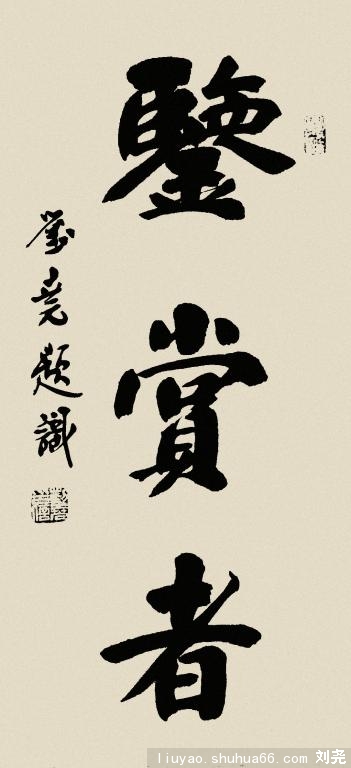 鑒賞者
劉堯題識
liuyao.shuhua66.com 刘尧